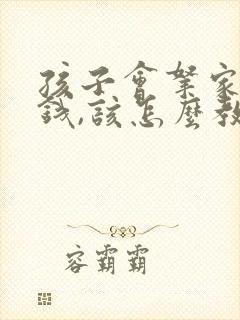 孩子會拏家
錢,該怎麼教
容霸霸